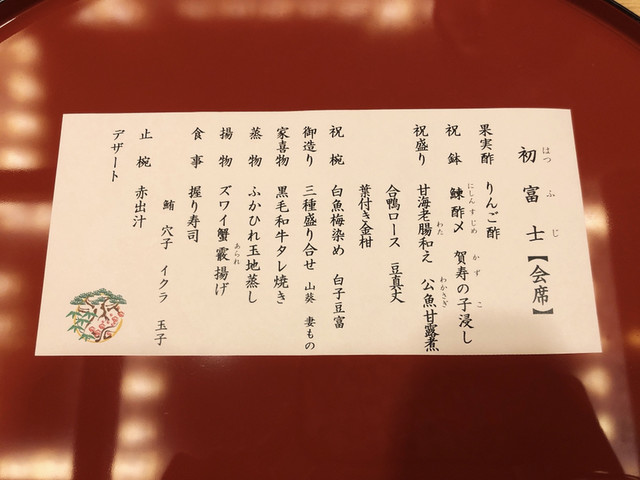 初富士【会席】
はつ ふ じ
果実酢 りんご酢
祝鉢 鰊酢〆 賀寿の子浸し
にしんすじめ かずこ
祝盛り 甘海老腸和え 公魚甘露煮
わた わかさぎ
合鴨ロース 豆真丈
葉付き金柑
祝椀 白魚梅染め 白子豆富
御造り 三種盛り合せ 山葵 妻もの
家喜物 黒毛和牛タレ焼き
蒸物 ふかひれ玉地蒸し
揚物 ズワイ蟹霰揚げ
あられ
食事 握り寿司
鮪 穴子 イクラ 玉子
止椀 赤出汁
デザート